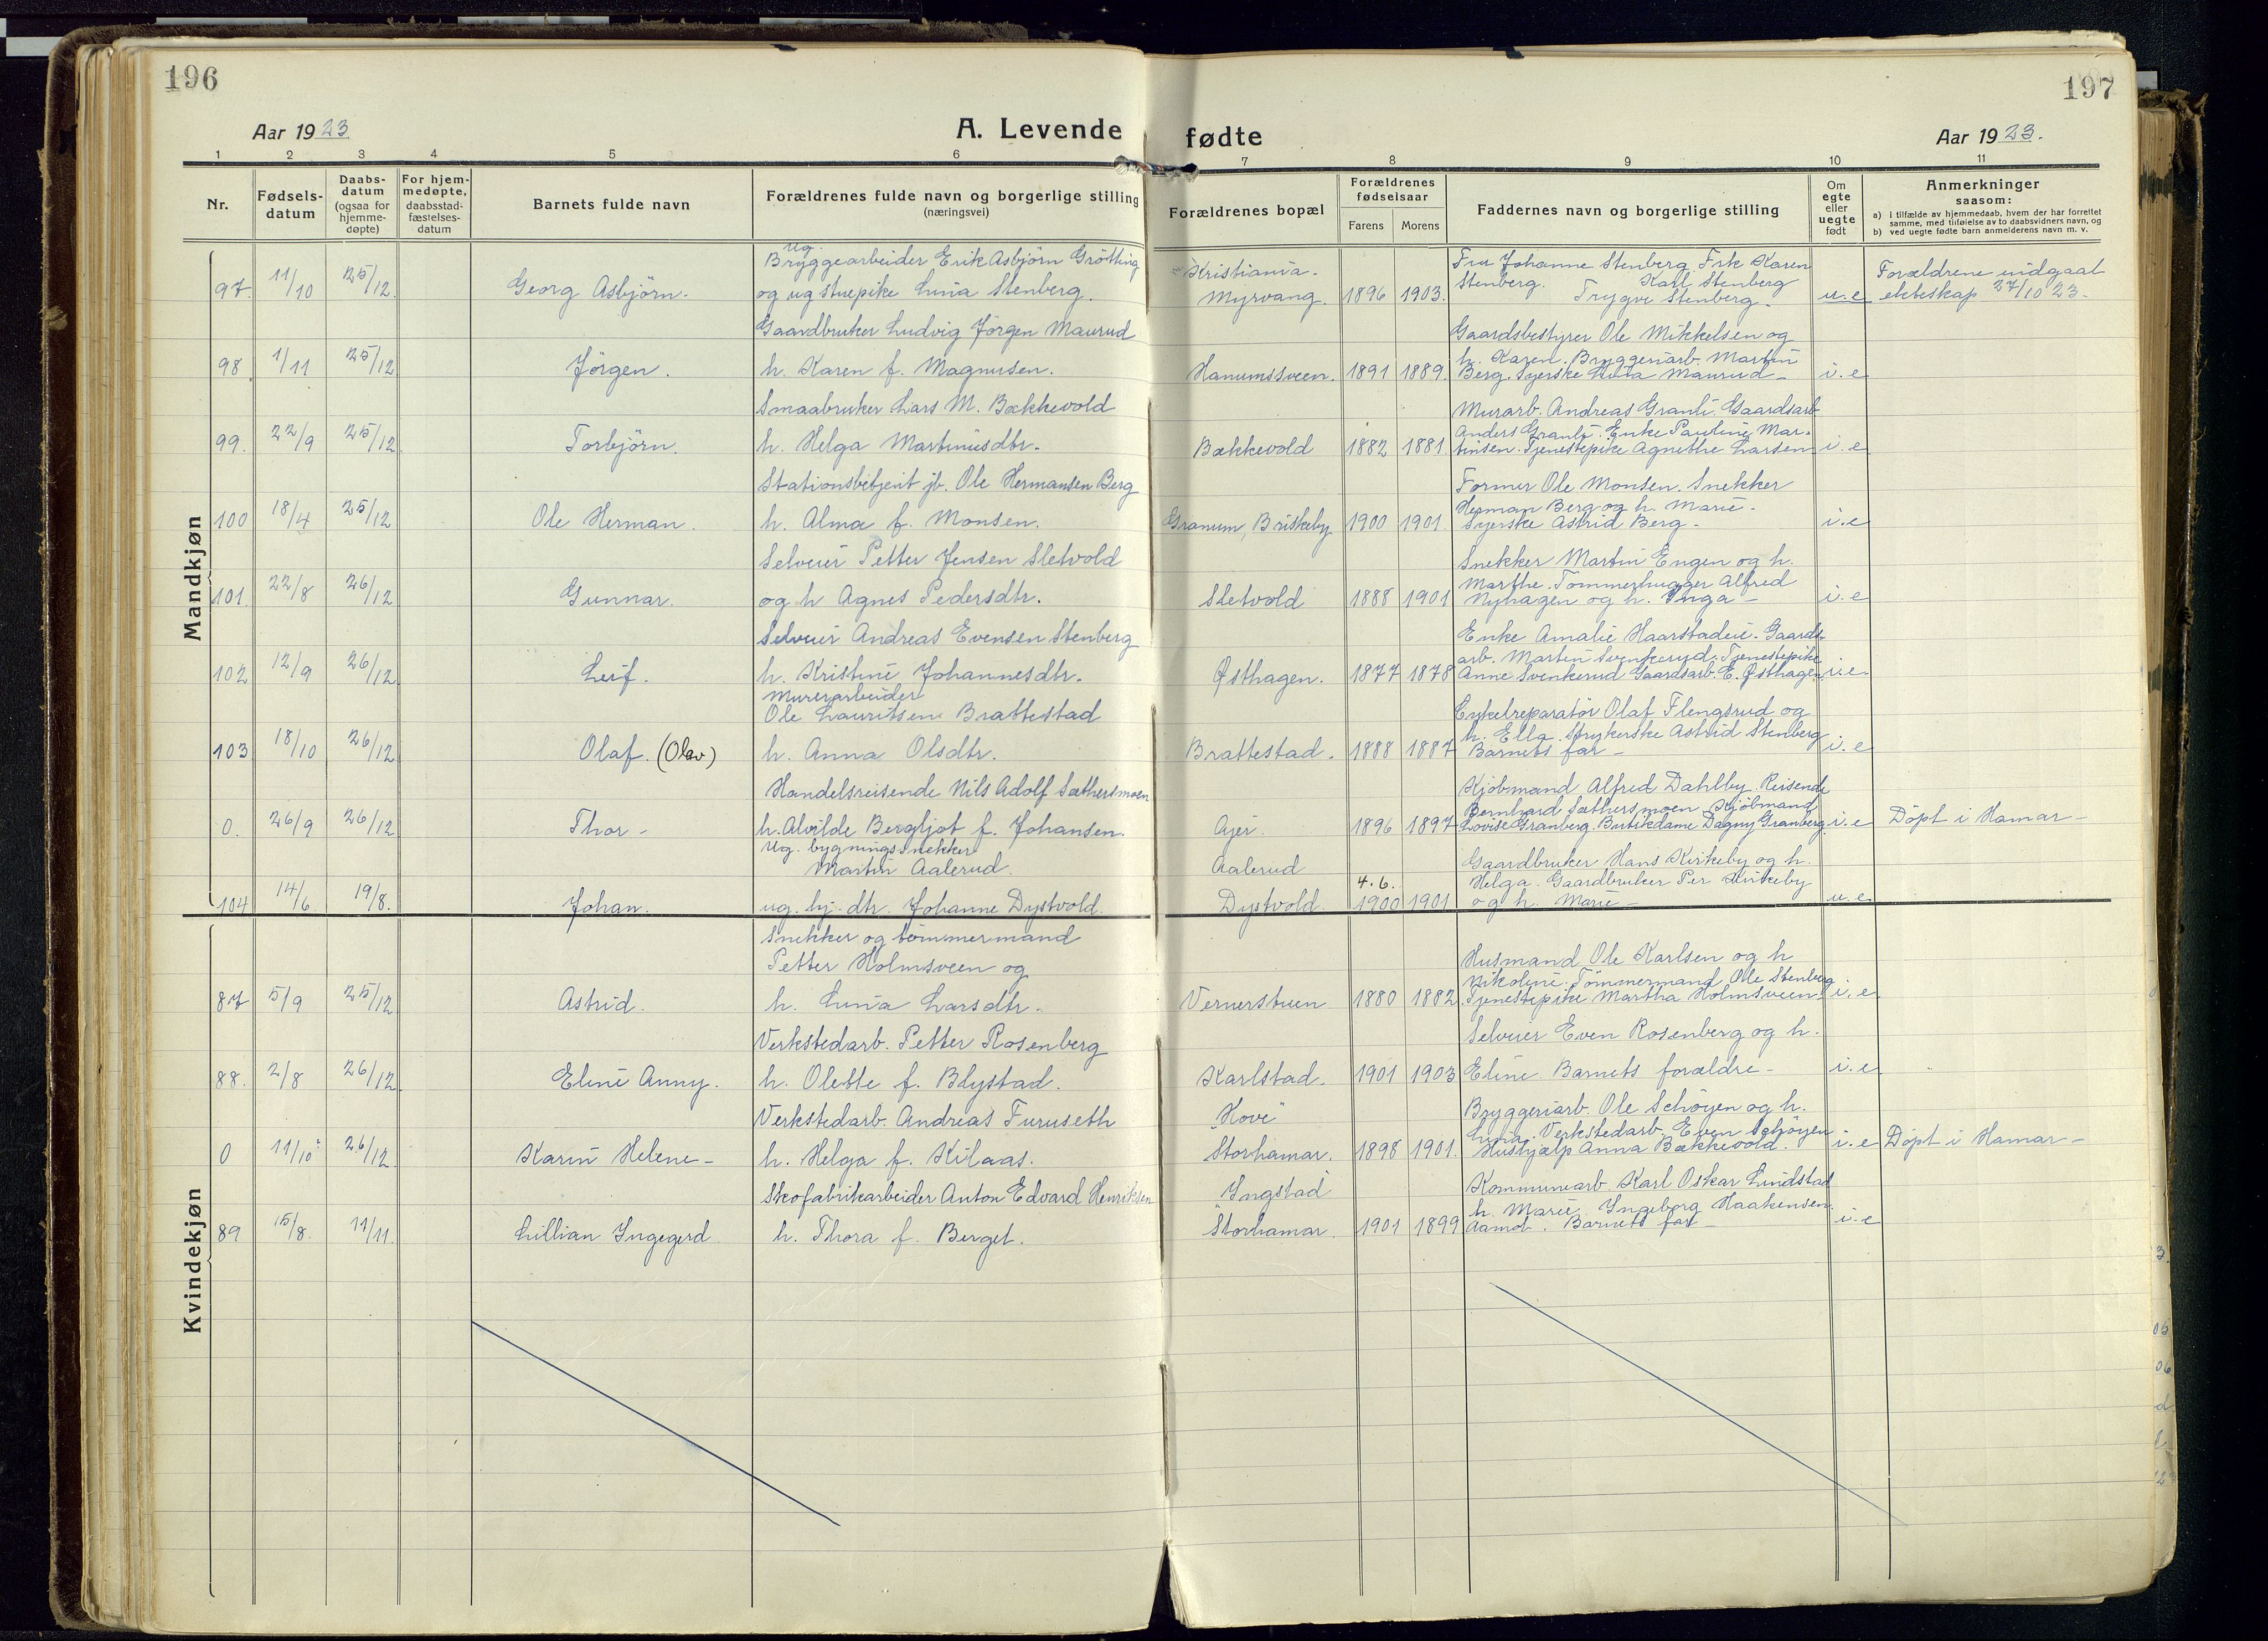 196
197
Aar 1923
A. Levende fødte
Aar 1923.
1 2 3 4 5 6 7 8 9 10 11
Nr.
Fødsels-datum
Daabs-datum (ogsaa for hjemme-døpte)
For hjem-medøpte, daabsstad-fæstelses-datum
Barnets fulde navn
Forældrenes fulde navn og borgerlige stilling (næringsvei)
Forældrenes bopæl
Forældrenes fødselsaar
Farens Morens
Faddernes navn og borgerlige stilling
Om egte eller uegte født
Anmerkninger saasom:
a) i tilfælde av hjemmedaab, hvem der har forrettet samme, med tilføielse av to daabsvidners navn, og
b) ved uegte fødte barn anmelderens navn m. v.
Mandkjøn
97. 11/10 25/12. Georg Asbjörn.
Ug.
Bryggearbeider Erik Asbjörn Grötting
og ug stuepike Lina Stenberg.
Kristiania.
Myrvang. 1896 1903.
Fru Johanne Stenberg. Frk Karen
Stenberg. Karl Stenberg
Trygve Stenberg.
u.e
Forældrene indgaat
ekteskap 27/10 23.
98. 1/11 25/12 Jörgen.
Gaardbruker Ludvig Jörgen Maurud
h. Karen f. Magnusen.
Hanumssveen. 1891 1889.
Gaardsbestyrer Ole Mikkelsen og
h. Karen. Bryggeriarb. Martin
Berg. Syerske Maurud
i.e
99. 22/9 25/12 Torbjörn.
Smaabruker Lars M. Bækkevold
h. Helga Martinusdtr.
Bækkevold 1882 1881.
Murarb. Andreas Granli. Gaardsarb
Anders Granli. Enke Pauline Mar-
tinsen. Tjenestepike Agnethe Larsen
i.e
100 18/4 25/12 Ole Herman.
Stationsbetjent jb. Ole Hermansen Berg
h. Alma f. Monsen.
Granum, Briskeby 1900 1901.
Former Ole Monsen. Snekker
Herman Berg og h. Marie.
Syerske Astrid Berg.
i.e
101. 22/8 26/12 Gunnar.
Selveier Petter Jensen Sletvold
og h Agnes Pedersdtr.
Sletvold 1888 1901
Snekker Martin Engen og h.
Marthe. Tömmerhugger Alfred
Nyhagen og h. Inga
i.e
102 12/9 26/12 Leif.
Selveier Andreas Evensen Stenberg
h. Kristine Johannesdtr.
Østhagen. 1877 1878
Enke Amalie Haarstadeie. Gaards-
arb. Martin Svenkerud. Tjenestepike
Anne Svenkerud Gaardsarb. E. Østhagen
i.e.
103 18/10 26/12 Olaf. (Olav)
Murerarbeider
Ole Lauritsen Brattestad
h. Anna Olsdtr.
Brattestad. 1888 1887
Cykelreparatör Olaf Flengsrud og
h. Ella. Strykerske Astrid Stenberg
Barnets far
i.e
0. 26/9 26/12 Thor
Handelsreisende Nils Adolf Sæthersmoen
h. Alvilde Bergljot f. Johansen.
Ajer. 1896 1897
Kjöbmand Alfred Dahlby. Reisende
Bernhard Sæthersmoen Kjöbmand
Lovise Granberg. Butikdame Dagny Granberg
i.e
Döpt i Hamar
104 14/6 19/8. Johan.
Ug. bygningssnekker
Martin Aalerud.
ug. hj. dtr. Johanne Dystvold.
Aalerud
Dystvold. 4.6. 1900 1901
Gaardbruker Hans Kirkeby og h.
Helga. Gaardbruker Per Kirkeby
og h. Marie
u.e
Kvindekjøn
87 5/9 25/12 Astrid.
Snekker og tömmermand
Petter Holmsveen og
h. Lina Larsdtr.
Vernerstuen 1880 1882
Husmand Ole Karlsen og h
Nikoline. Tömmermand Ole Stenberg.
Tjenestepike Martha Holmsveen.
i.e.
88. 2/8 26/12 Eline Anny.
Verkstedarb. Petter Rosenberg
h. Olette f. Blystad.
Karlstad. 1901 1903
Selveier Even Rosenberg og h.
Eline Barnets forældre
i.e
0 11/10 26/12. Karin Helene
Verkstedarb. Andreas Furuseth
h. Helga f. Kilaas.
"Hove"
Storhamar. 1898 1901.
Bryggeriarb. Ole Schöyen og h.
Lina. Verkstedarb. Even Schöyen
Hushjælp Anna Bækkevold.
i.e
Döpt i Hamar
89 15/8. 11/11. Lillian Ingegerd
Skofabrikarbeider Anton Edvard Henriksen
h. Thora f. Berget.
Yngstad
Storhamar. 1901 1899
Kommunearb Karl Oskar Lundstad
h. Marie. Ingeborg Haakensen
Aamot. Barnets far
i.e